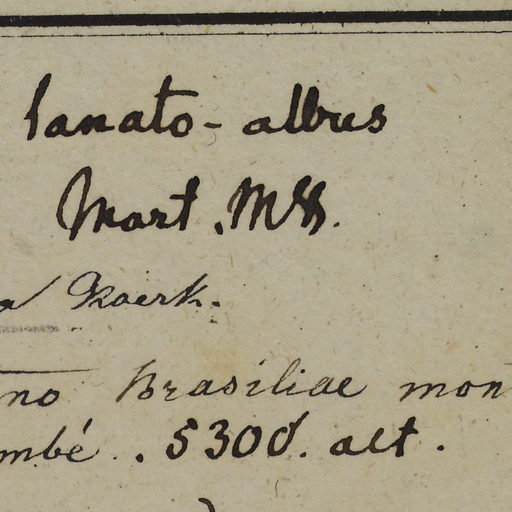 lanato-albus
Mart. MSS.
a Koerk.
no Brasiliae mon
mbé. 5300'. alt.